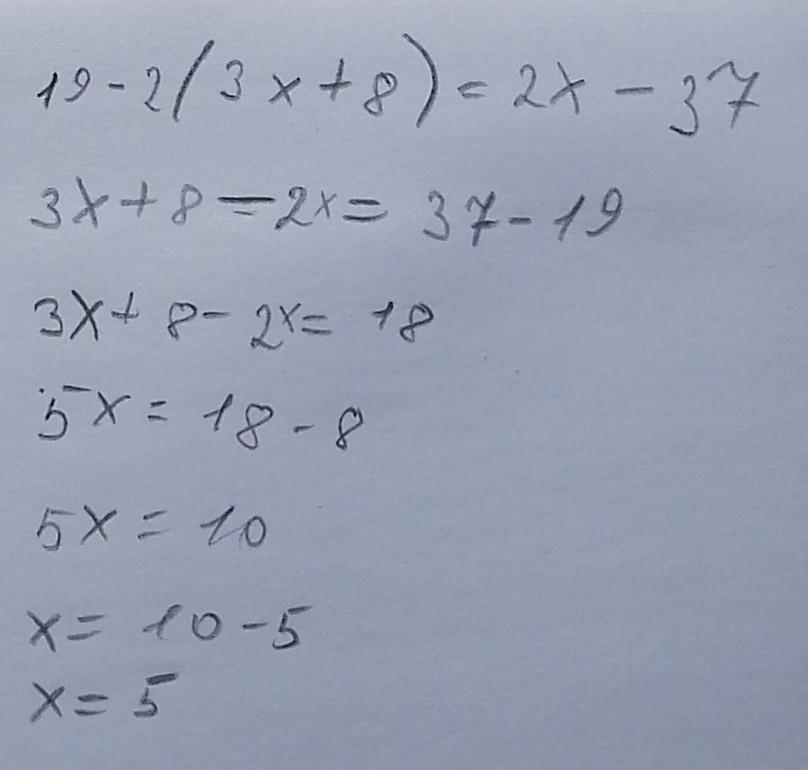 19-2(3x+8)=2x-37
3x+8-2x=37-19
3x+8-2x=18
5x=18-8
5x=10
x=10-5
x=5